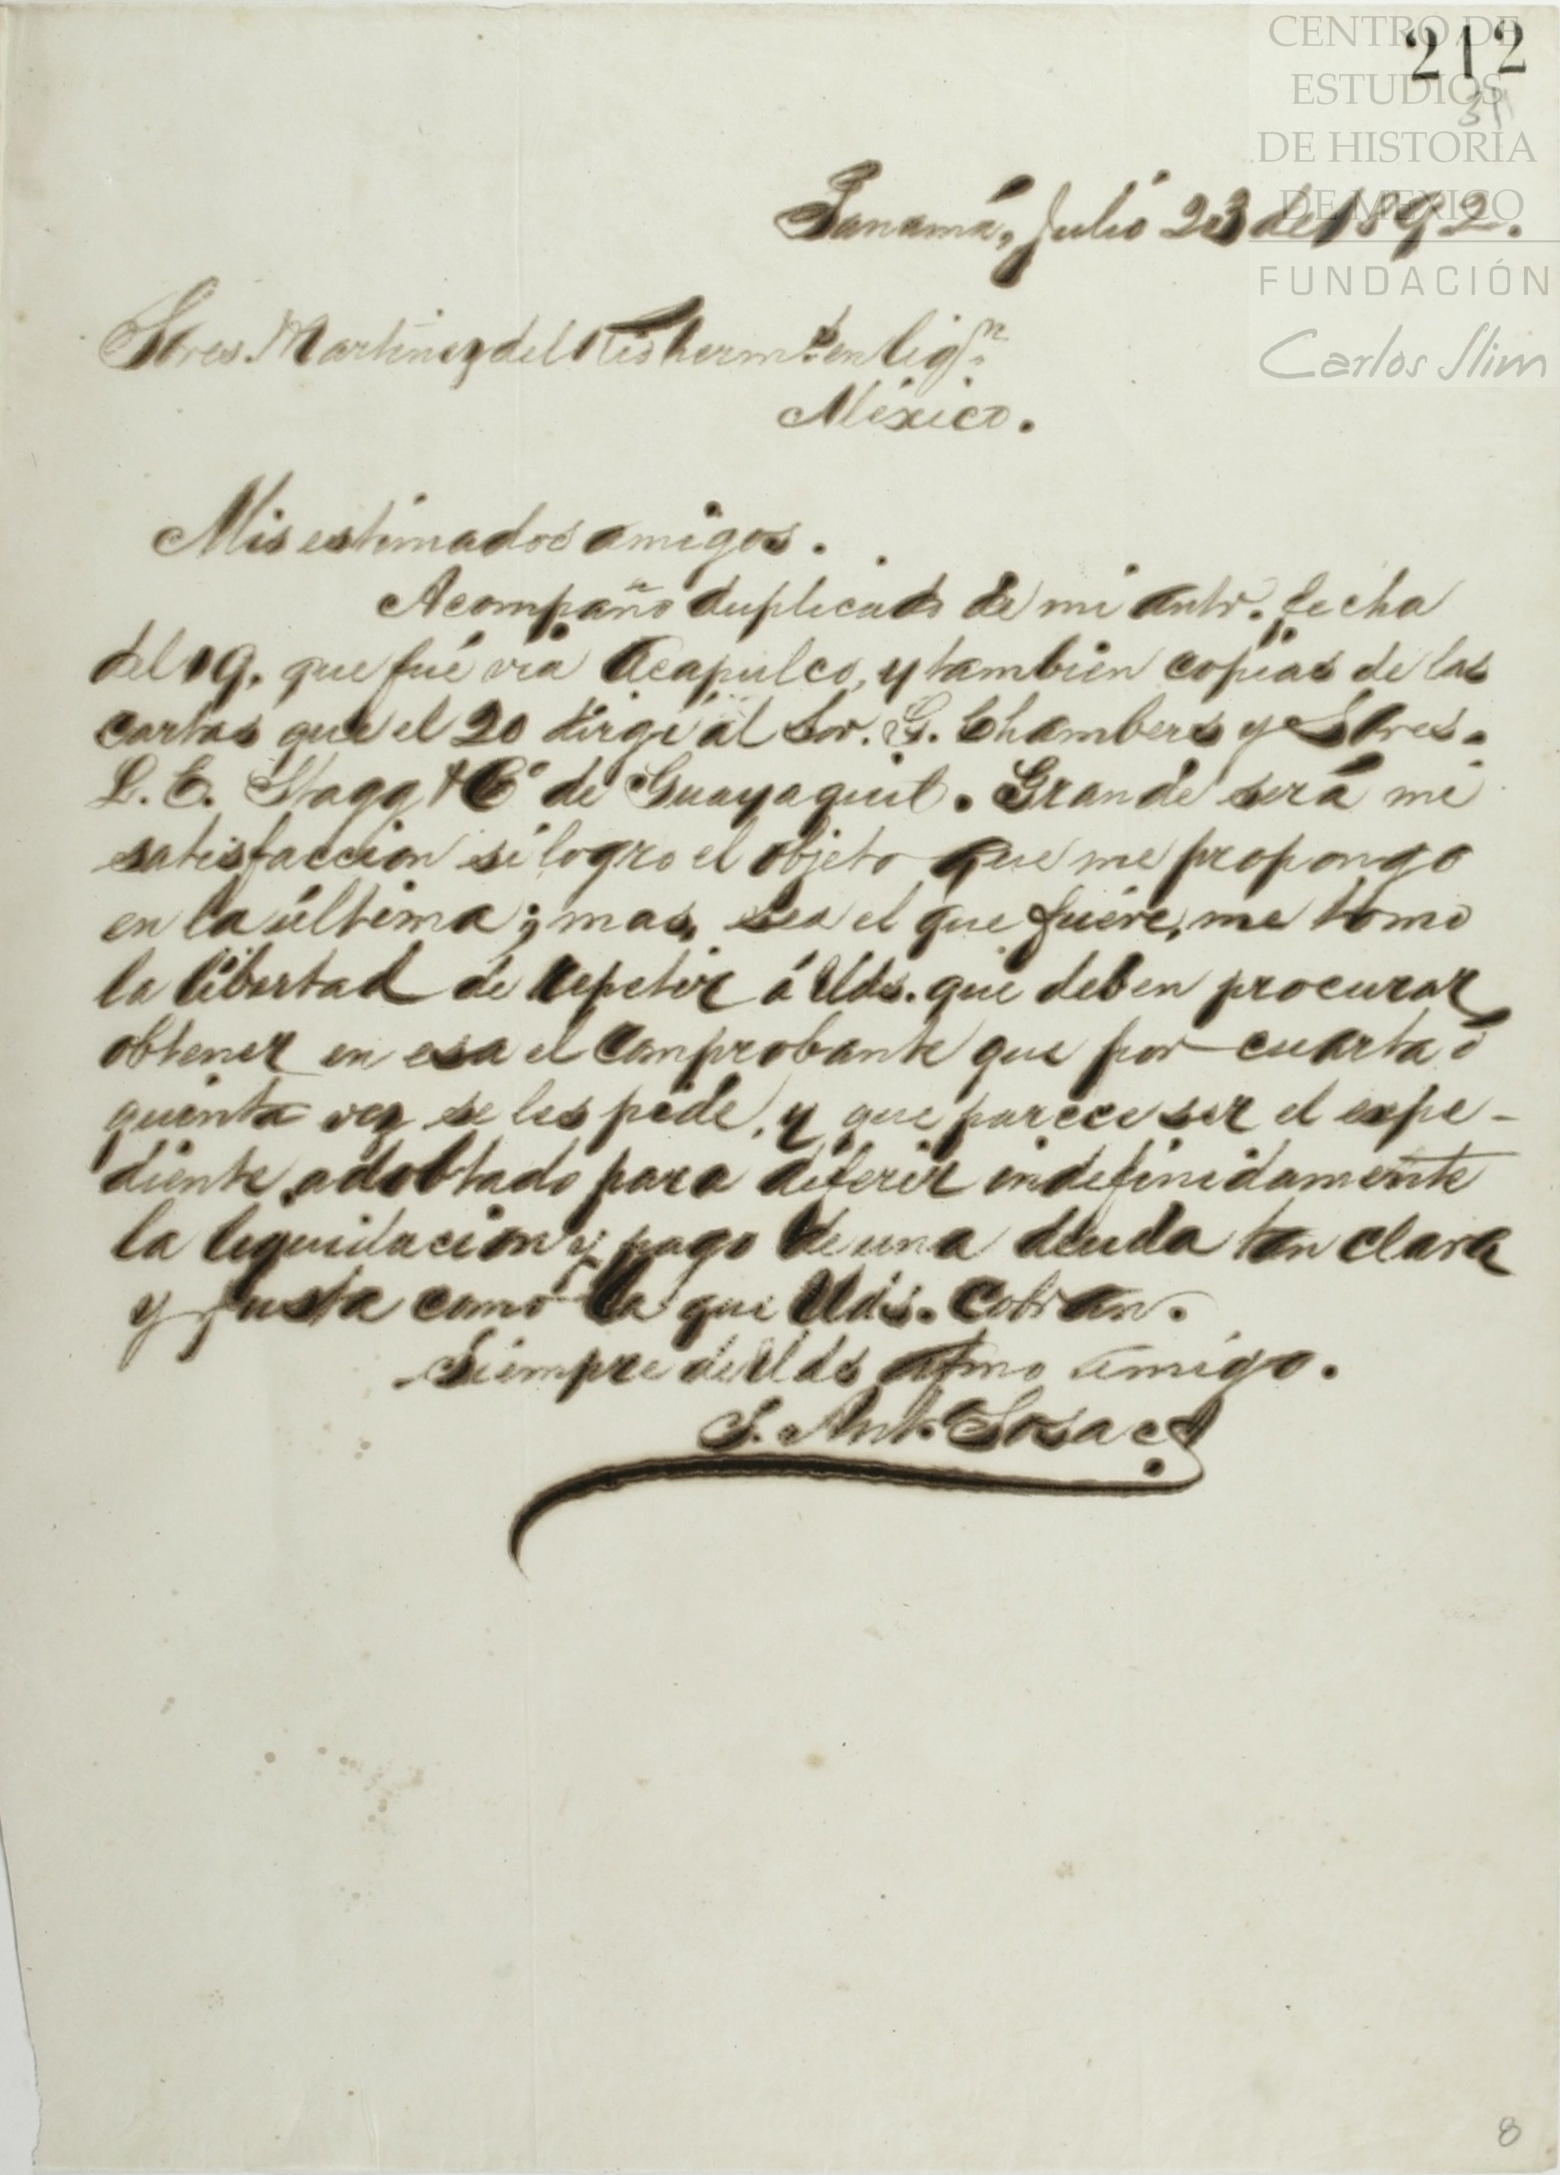 212
CENTRO DE
ESTUDIOS
DE HISTORIA
DE MEXICO
FUNDACIÓN
Carlos Slim
Panamá, Julio 23 de 1892.
Sres. Martinez del Rio herms. en liqn.
México.
Mis estimados amigos.
Acompaño duplicado de mi antr. fecha
del 19. que fué via Acapulco, y tambien copias de las
cartas que el 20 dirigí al Sor. G. Chambers y Sores.
L. C. Stagg & Co de Guayaquil. Grande será mi
satisfaccion si logro el objeto que me propongo
en la última; mas, sea el que fuére, me tomo
la libertad de repetir á Uds. que deben procurar
obtener en esa el comprobante que por cuarta ó
quinta vez se les pide, y que parece ser el expe-
diente adobtado para diferir indefinidamente
la liquidacion y pago de una deuda tan clara
y justa como la que Uds. cobran.
Siempre de Uds atmo amigo.
J. Anto. Sosa
8